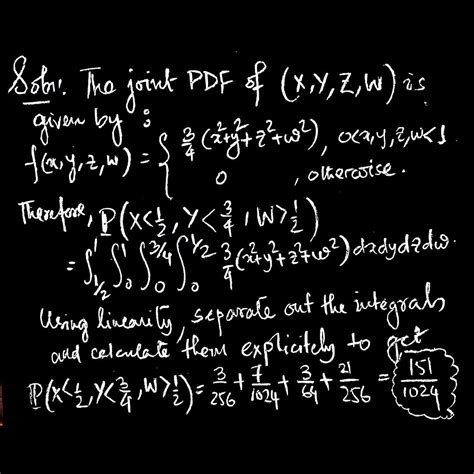 Soln: The joint PDF of (X,Y,Z,W) is
given by :
f(x,y,z,w) = { 3/4 (x²+y²+z²+w²), 0<x,y,z,w<1
0 , otherwise.
Therefore, P(X<1/2, Y<3/4, W>1/2)
= ∫_{1/2}^{1} ∫_0^1 ∫_0^{3/4} ∫_0^{1/2} 3/4 (x²+y²+z²+w²) dx dy dz dw.
Using linearity, separate out the integrals
and calculate them explicitely to get
P(X<1/2, Y<3/4, W>1/2) = 3/256 + 7/1024 + 3/64 + 21/256 = 151/1024